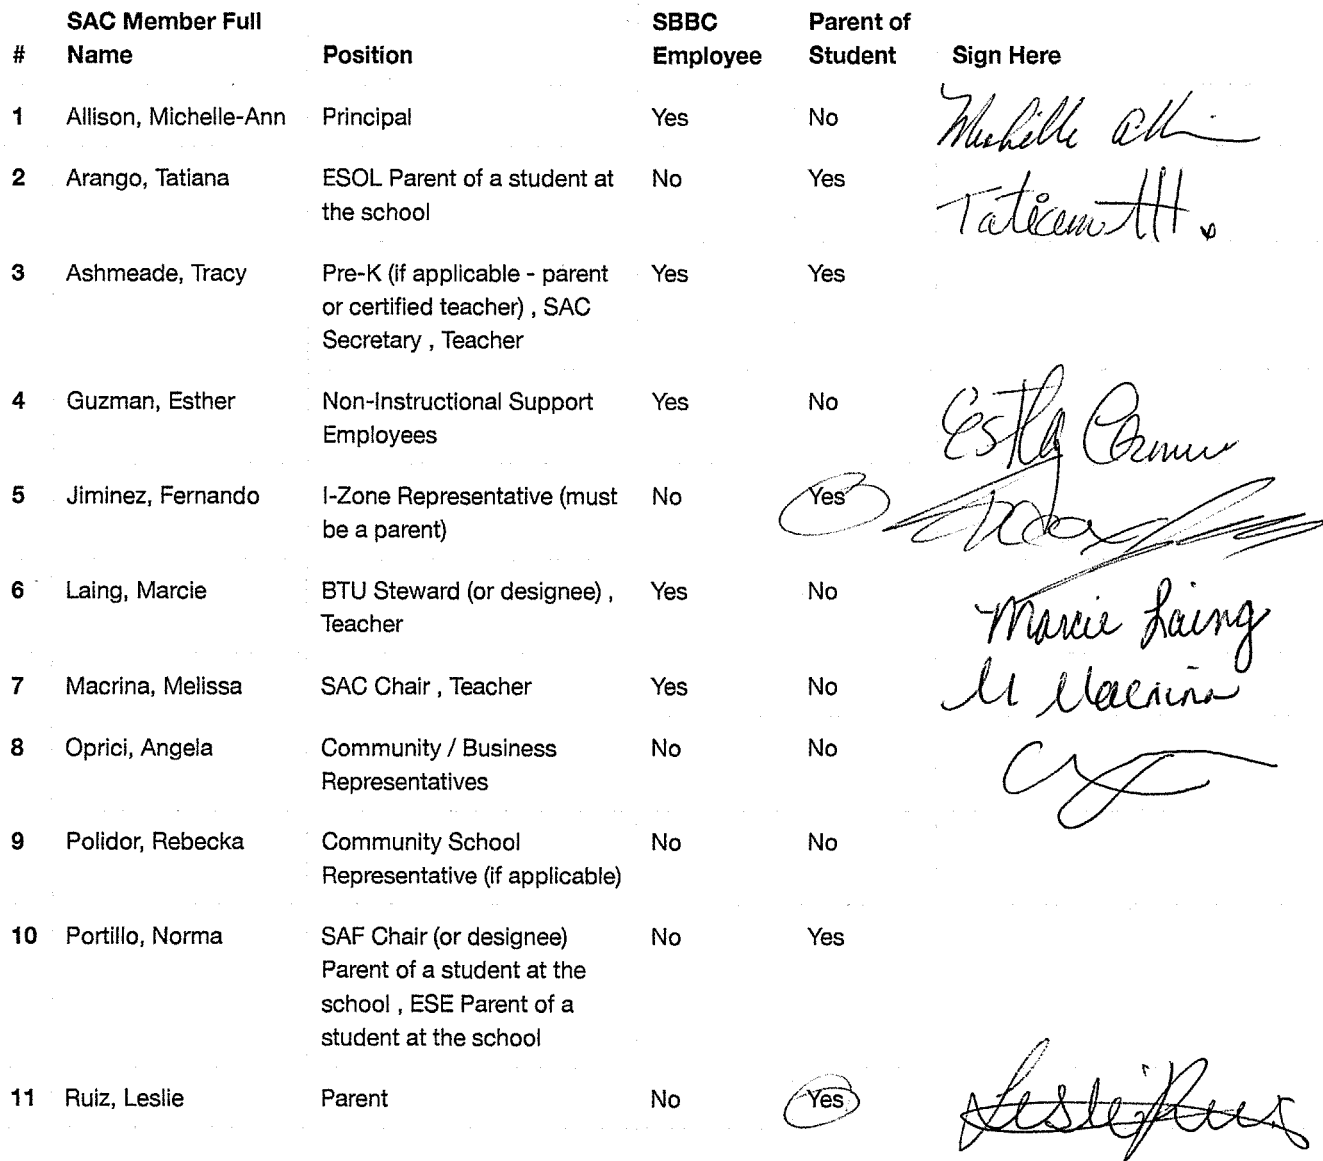 # SAC Member Full Name Position SBBC Employee Parent of Student Sign Here
1 Allison, Michelle-Ann Principal Yes No Michelle
2 Arango, Tatiana ESOL Parent of a student at Yes No
the school
3 Ashmeade, Tracy Pre-K (if applicable - parent Yes Yes
or certified teacher) , SAC
Secretary , Teacher
4 Guzman, Esther Non-Instructional Support Yes No
Employees
5 Jiminez, Fernando I-Zone Representative (must No Yes
be a parent)
6 Laing, Marcie BTU Steward (or designee) , Yes No Marcie Laing
Teacher
7 Macrina, Melissa SAC Chair , Teacher Yes No M Macrina
8 Oprici, Angela Community / Business No No
Representatives
9 Polidor, Rebecka Community School No No
Representative (if applicable)
10 Portillo, Norma SAF Chair (or designee) No Yes
Parent of a student at the
school , ESE Parent of a
student at the school
11 Ruiz, Leslie Parent No Yes Leslie Ruiz